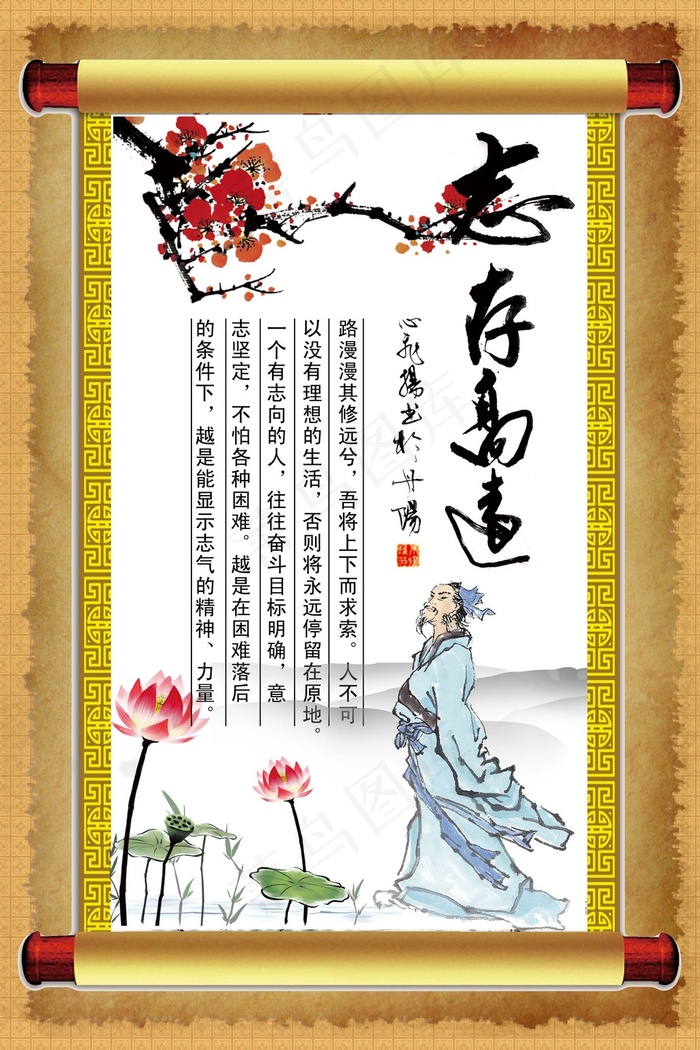 志存高远
心飛揚书於丹陽
路漫漫其修远兮，吾将上下而求索。人不可
以没有理想的生活，否则将永远停留在原地。
一个有志向的人，往往奋斗目标明确，意
志坚定，不怕各种困难。越是在困难落后
的条件下，越是能显示志气的精神、力量。